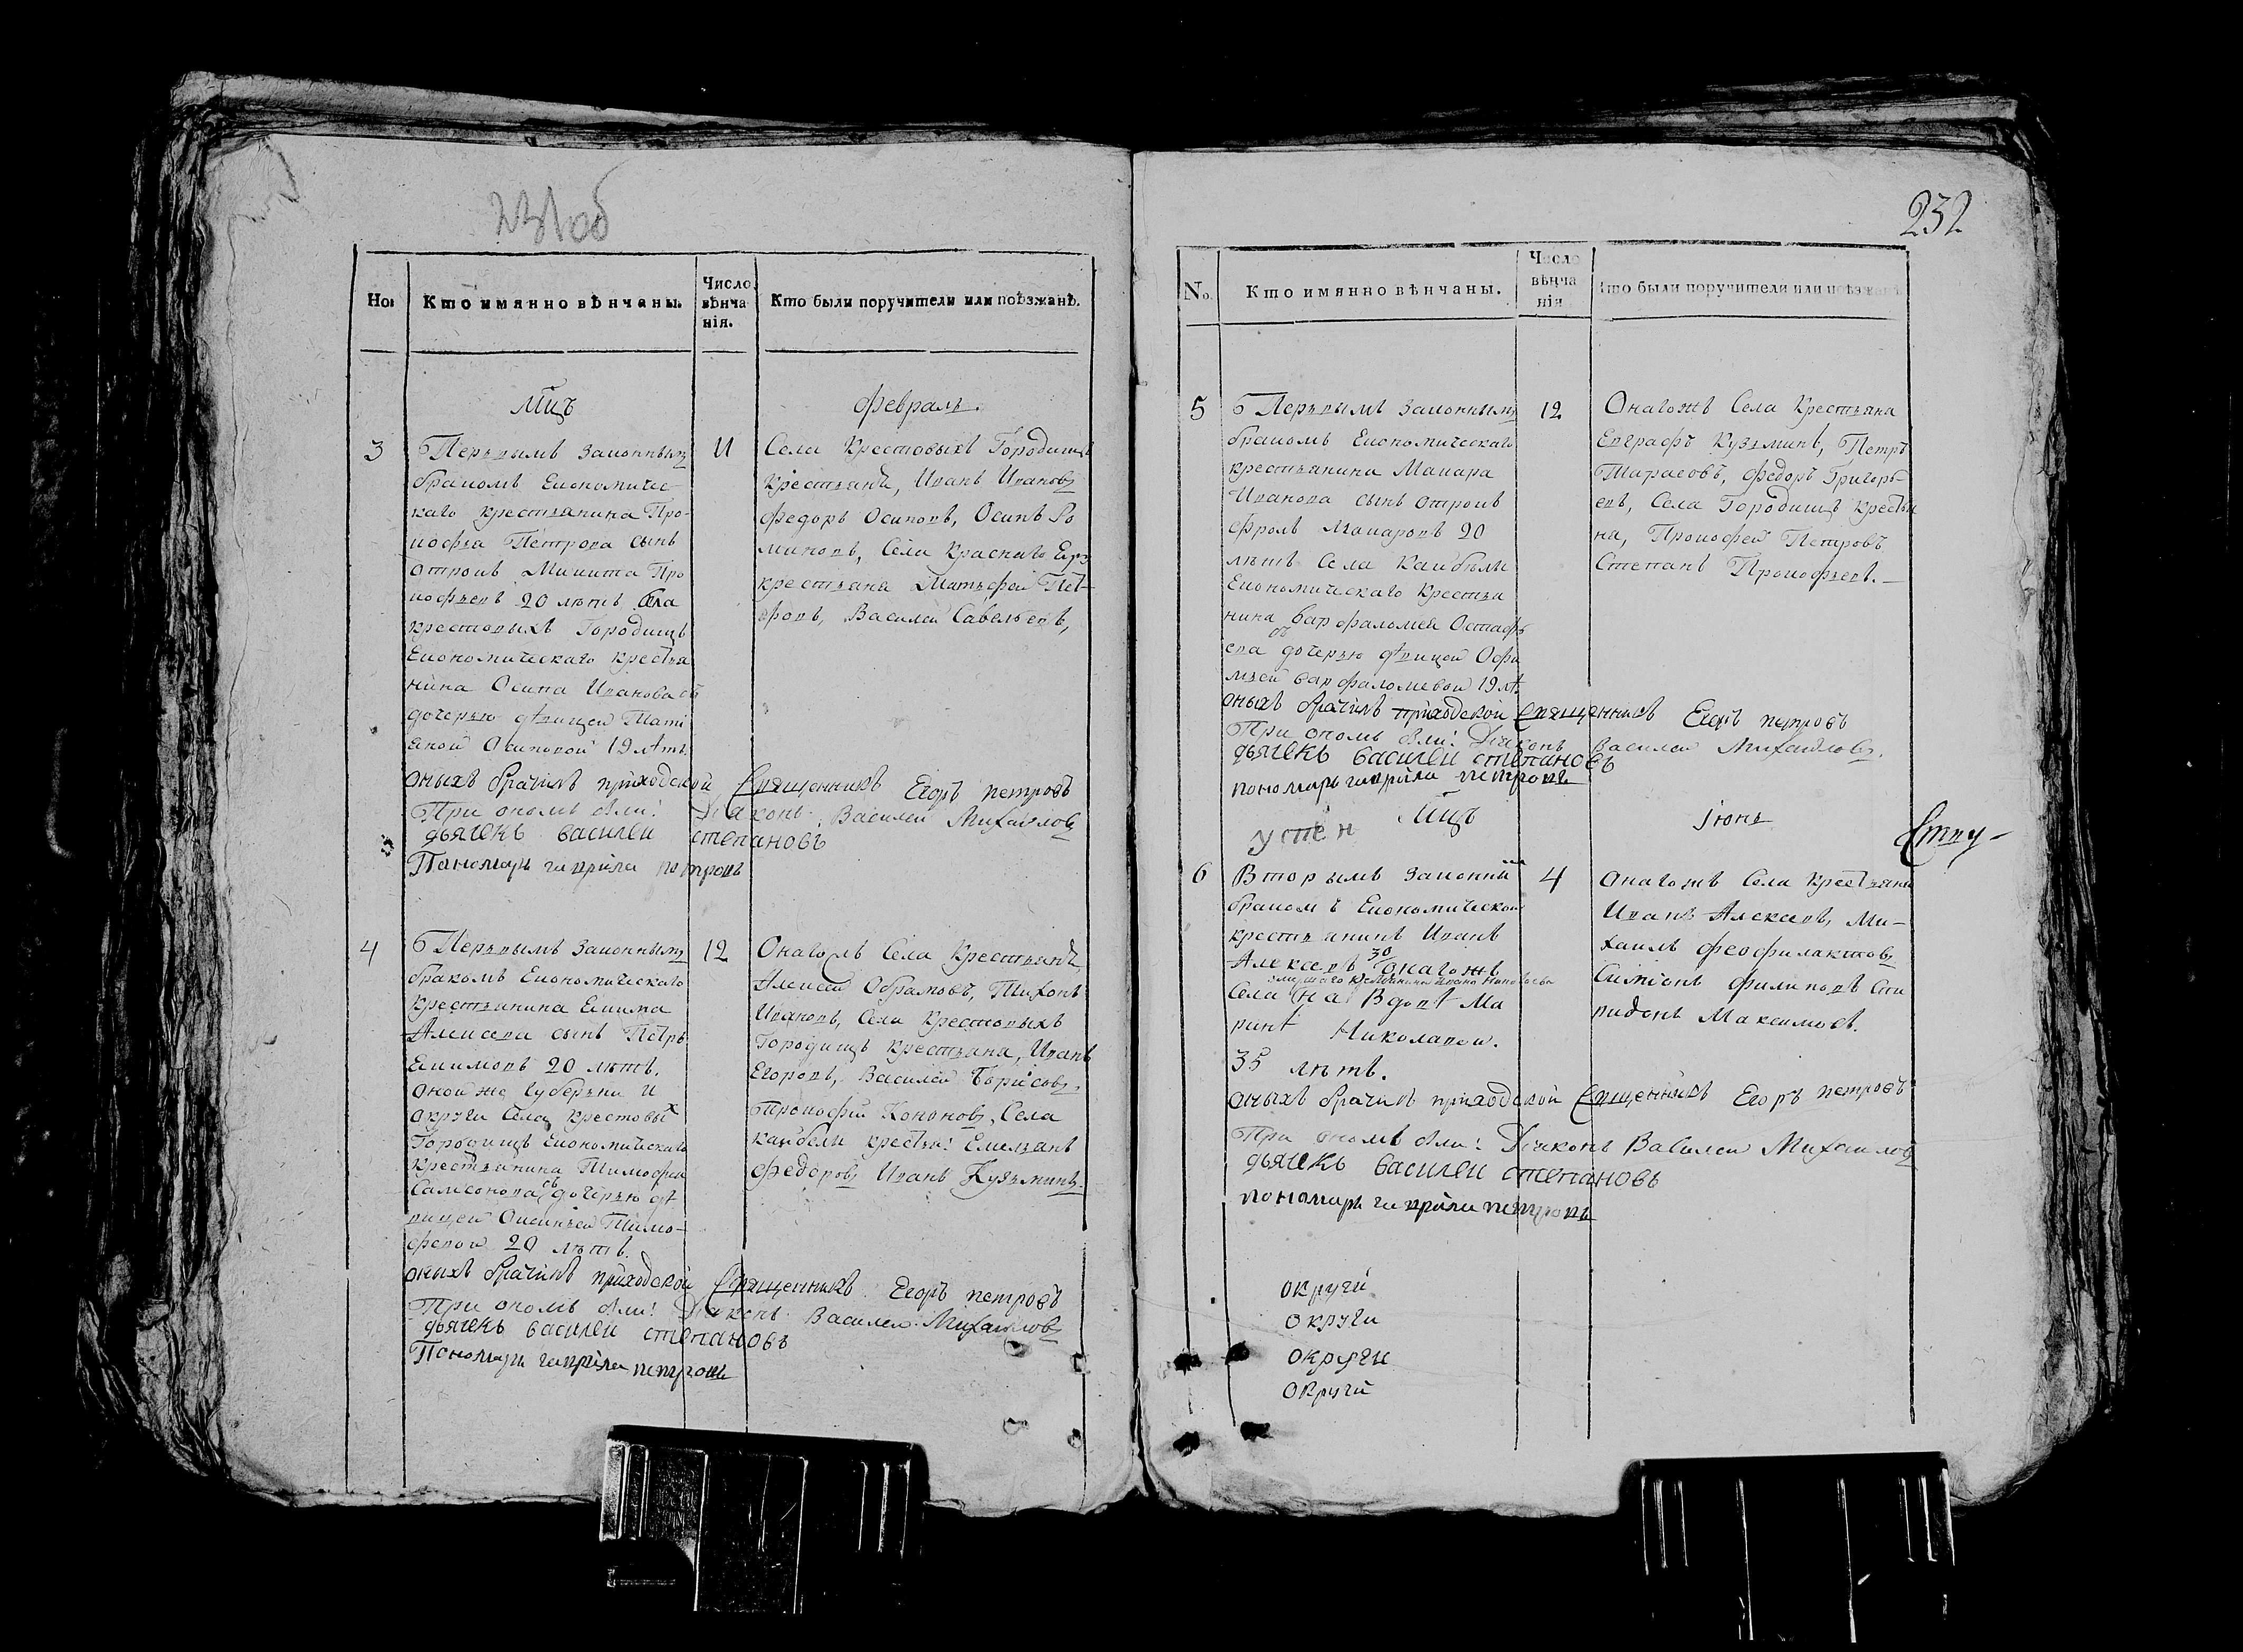 231 об
Но:
Кто имянно вѣнчаны.
Число вѣнчанія.
Кто были поручители или поѣзжанѣ.
Мцъ
февраль.
3
Первымъ законнымъ
бракомъ Економиче-
каго крестьянина Про-
кофья Петрова сынъ
отрокъ Микита Про
кофьевъ 20 лѣтъ Села
крестовыхъ Городищъ
Економическаго крестья
нина Осипа Иванова съ
дочерью дѣвицей Тати
яной Осиповой 19 лѣтъ
11
Села Крестовыхъ Городищъ
крестьянѣ, Иванъ Ивановъ
Федоръ Осиповъ, Осипъ Ро
мановъ, Села Краснаго Яру
крестьяня Матьфей Пет-
ровъ, Василей Савельевъ,
оныхъ брачилъ приходской Священникъ Егоръ петровъ
При ономъ были: Діяконъ Василей Михайловъ
дьячекъ василей степановъ
Пономарь гаврила петровъ
4
Первымъ законнымъ
бракомъ Економическаго
крестьянина Екима
Алексева сынъ Петръ
Екимовъ 20 лѣтъ.
оной же губерьни и
округи Села крестовых
Городищъ Економическаго
крестьянина Тимофея
Самсонова съ дочерью дѣ
вицей Оксиньей Тимо-
феевой 20 лѣтъ.
12
Онагожъ Села Крестьянѣ
Алексей Обрамовъ, Тихонъ
Ивановъ, Села Крестовыхъ
Городищъ крестьяня, Иванъ
Егоровъ, Василей Борисовъ,
Прокофей Кононовъ, Села
кайбели крестья: Емельянъ
Федоровъ Иванъ Кузьминъ.
оныхъ брачилъ приходской Священникъ Егоръ петровъ
При ономъ были: Діяконъ Василей Михайловъ
дьячекъ василей степановъ
Пономарь гаврила петровъ
232
No.
Кто имянно вѣнчаны.
Число вѣнчанія
Кто были поручители или поѣзжанѣ
5
Первымъ законнымъ
бракомъ Економическаго
крестьянина Макара
Иванова сынъ отрокъ
Фролъ Макаровъ 20
лѣтъ Села Кайбѣли
Економическаго крестья
нина варфаломея Остафь
ева съ дочерью дѣвицей Офи
мьей варфаломевой 19 лѣ
12
Онагожъ Села Крестьяна
Евграфъ Кузьминъ, Петръ
Тарасовъ, Федоръ Григорь-
евъ, Села Городищъ крестья
на, Прокофей Петровъ
Степанъ Прокофьевъ.
оныхъ брачилъ приходской Священникъ Егоръ петровъ
При ономъ были: Діяконъ Василей Михайловъ.
дьячекъ василей степановъ
пономарь гаврила петровъ
Мцъ
іюнь
6
Вторымъ законны
бракомъ Економической
крестьянинъ Иванъ
Алексевъ 30 онагожъ
Села на Вдовѣ Ма
ринѣ Николавой.
35 лѣтъ.
4
онагожъ Села Крестьяни
Иванъ Алексевъ, Ми-
хаилъ Феофилактовъ
Симіонъ Филиповъ Спи
ридонъ Максимовъ.
оныхъ брачилъ приходской Священникъ Егоръ петровъ
При ономъ были: Діяконъ Василей Михаиловъ
дьячекъ василей степановъ
пономарь гаврила петровъ
округи
округи
округи
округи